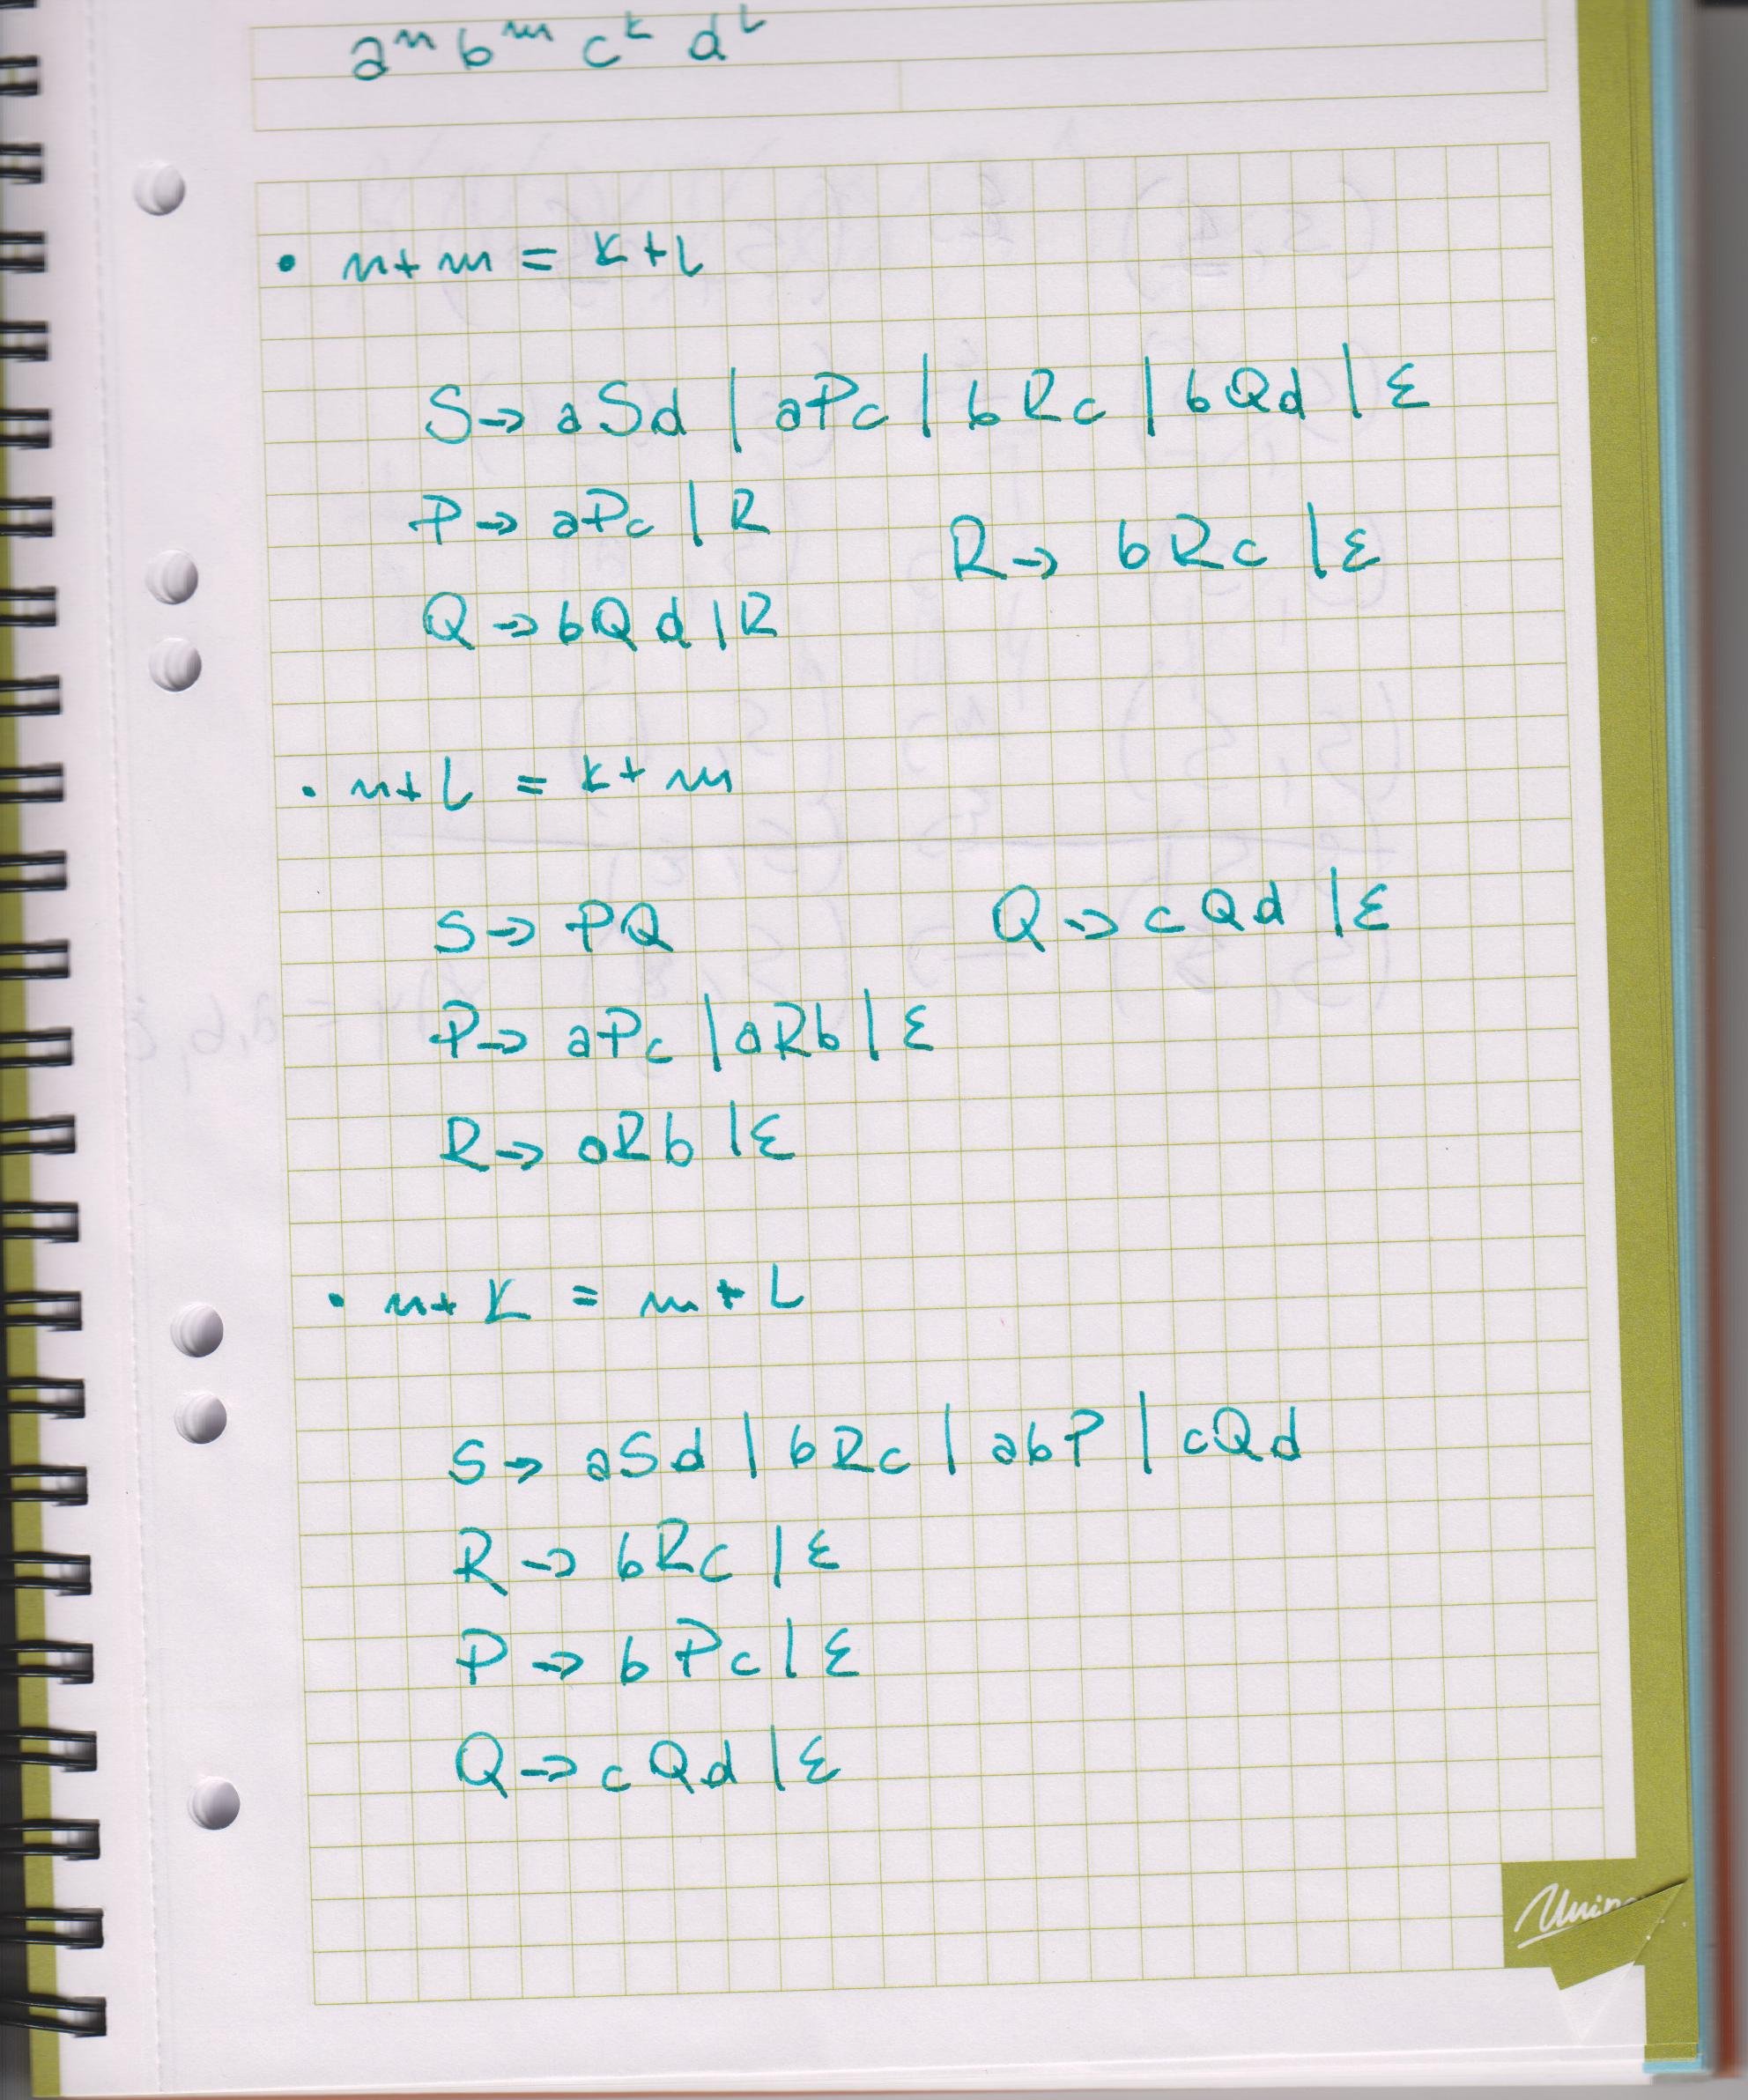 aⁿ bᵐ cᵏ dᴸ
• n+m = K+L
S → aSd | aPc | bRc | bQd | ε
P → aPc | R
R → bRc | ε
Q → bQd | R
• n+L = K+m
S → PQ
Q → cQd | ε
P → aPc | aRb | ε
R → aRb | ε
• n+K = m+L
S → aSd | bRc | abP | cQd
R → bRc | ε
P → bPc | ε
Q → cQd | ε